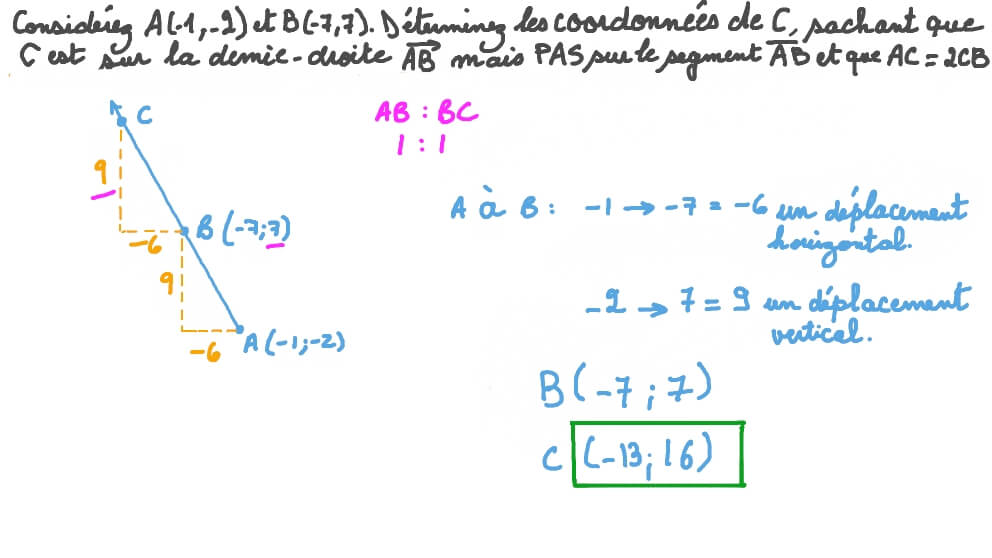 Considérez A(-1,-2) et B(-7,7). Déterminez les coordonnées de C, sachant que
C est sur la demie-droite AB mais PAS sur le segment AB et que AC = 2CB
C
AB : BC
1 : 1
9
A à B : -1 → -7 = -6 un déplacement
horizontal.
B(-7;7)
-6
9
-2 → 7 = 9 un déplacement
vertical.
A(-1;-2)
-6
B(-7;7)
C (-13;16)